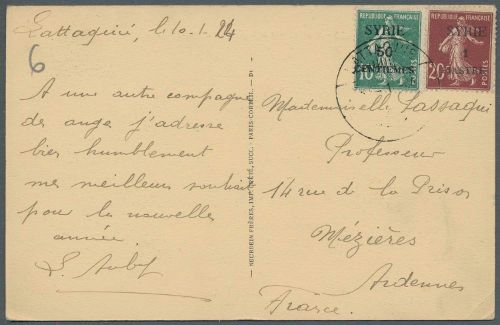 Lattaquié, le 10.1.24
6
A une autre compagne
de ange j'adresse
bien humblement
mes meilleurs souhaits
pour la nouvelle
année.
NEURDEIN FRÈRES, IMP. SUCC. - PARIS-CORBEIL
REPUBLIQUE FRANÇAISE
SYRIE
50
CENTIEMES
10
POSTES
REPUBLIQUE FRANÇAISE
SYRIE
1
PIASTRE
20
POSTES
Mademoiselle Lassaqui
Professeur
14 rue de la Prison
Mézières
Ardennes
France.